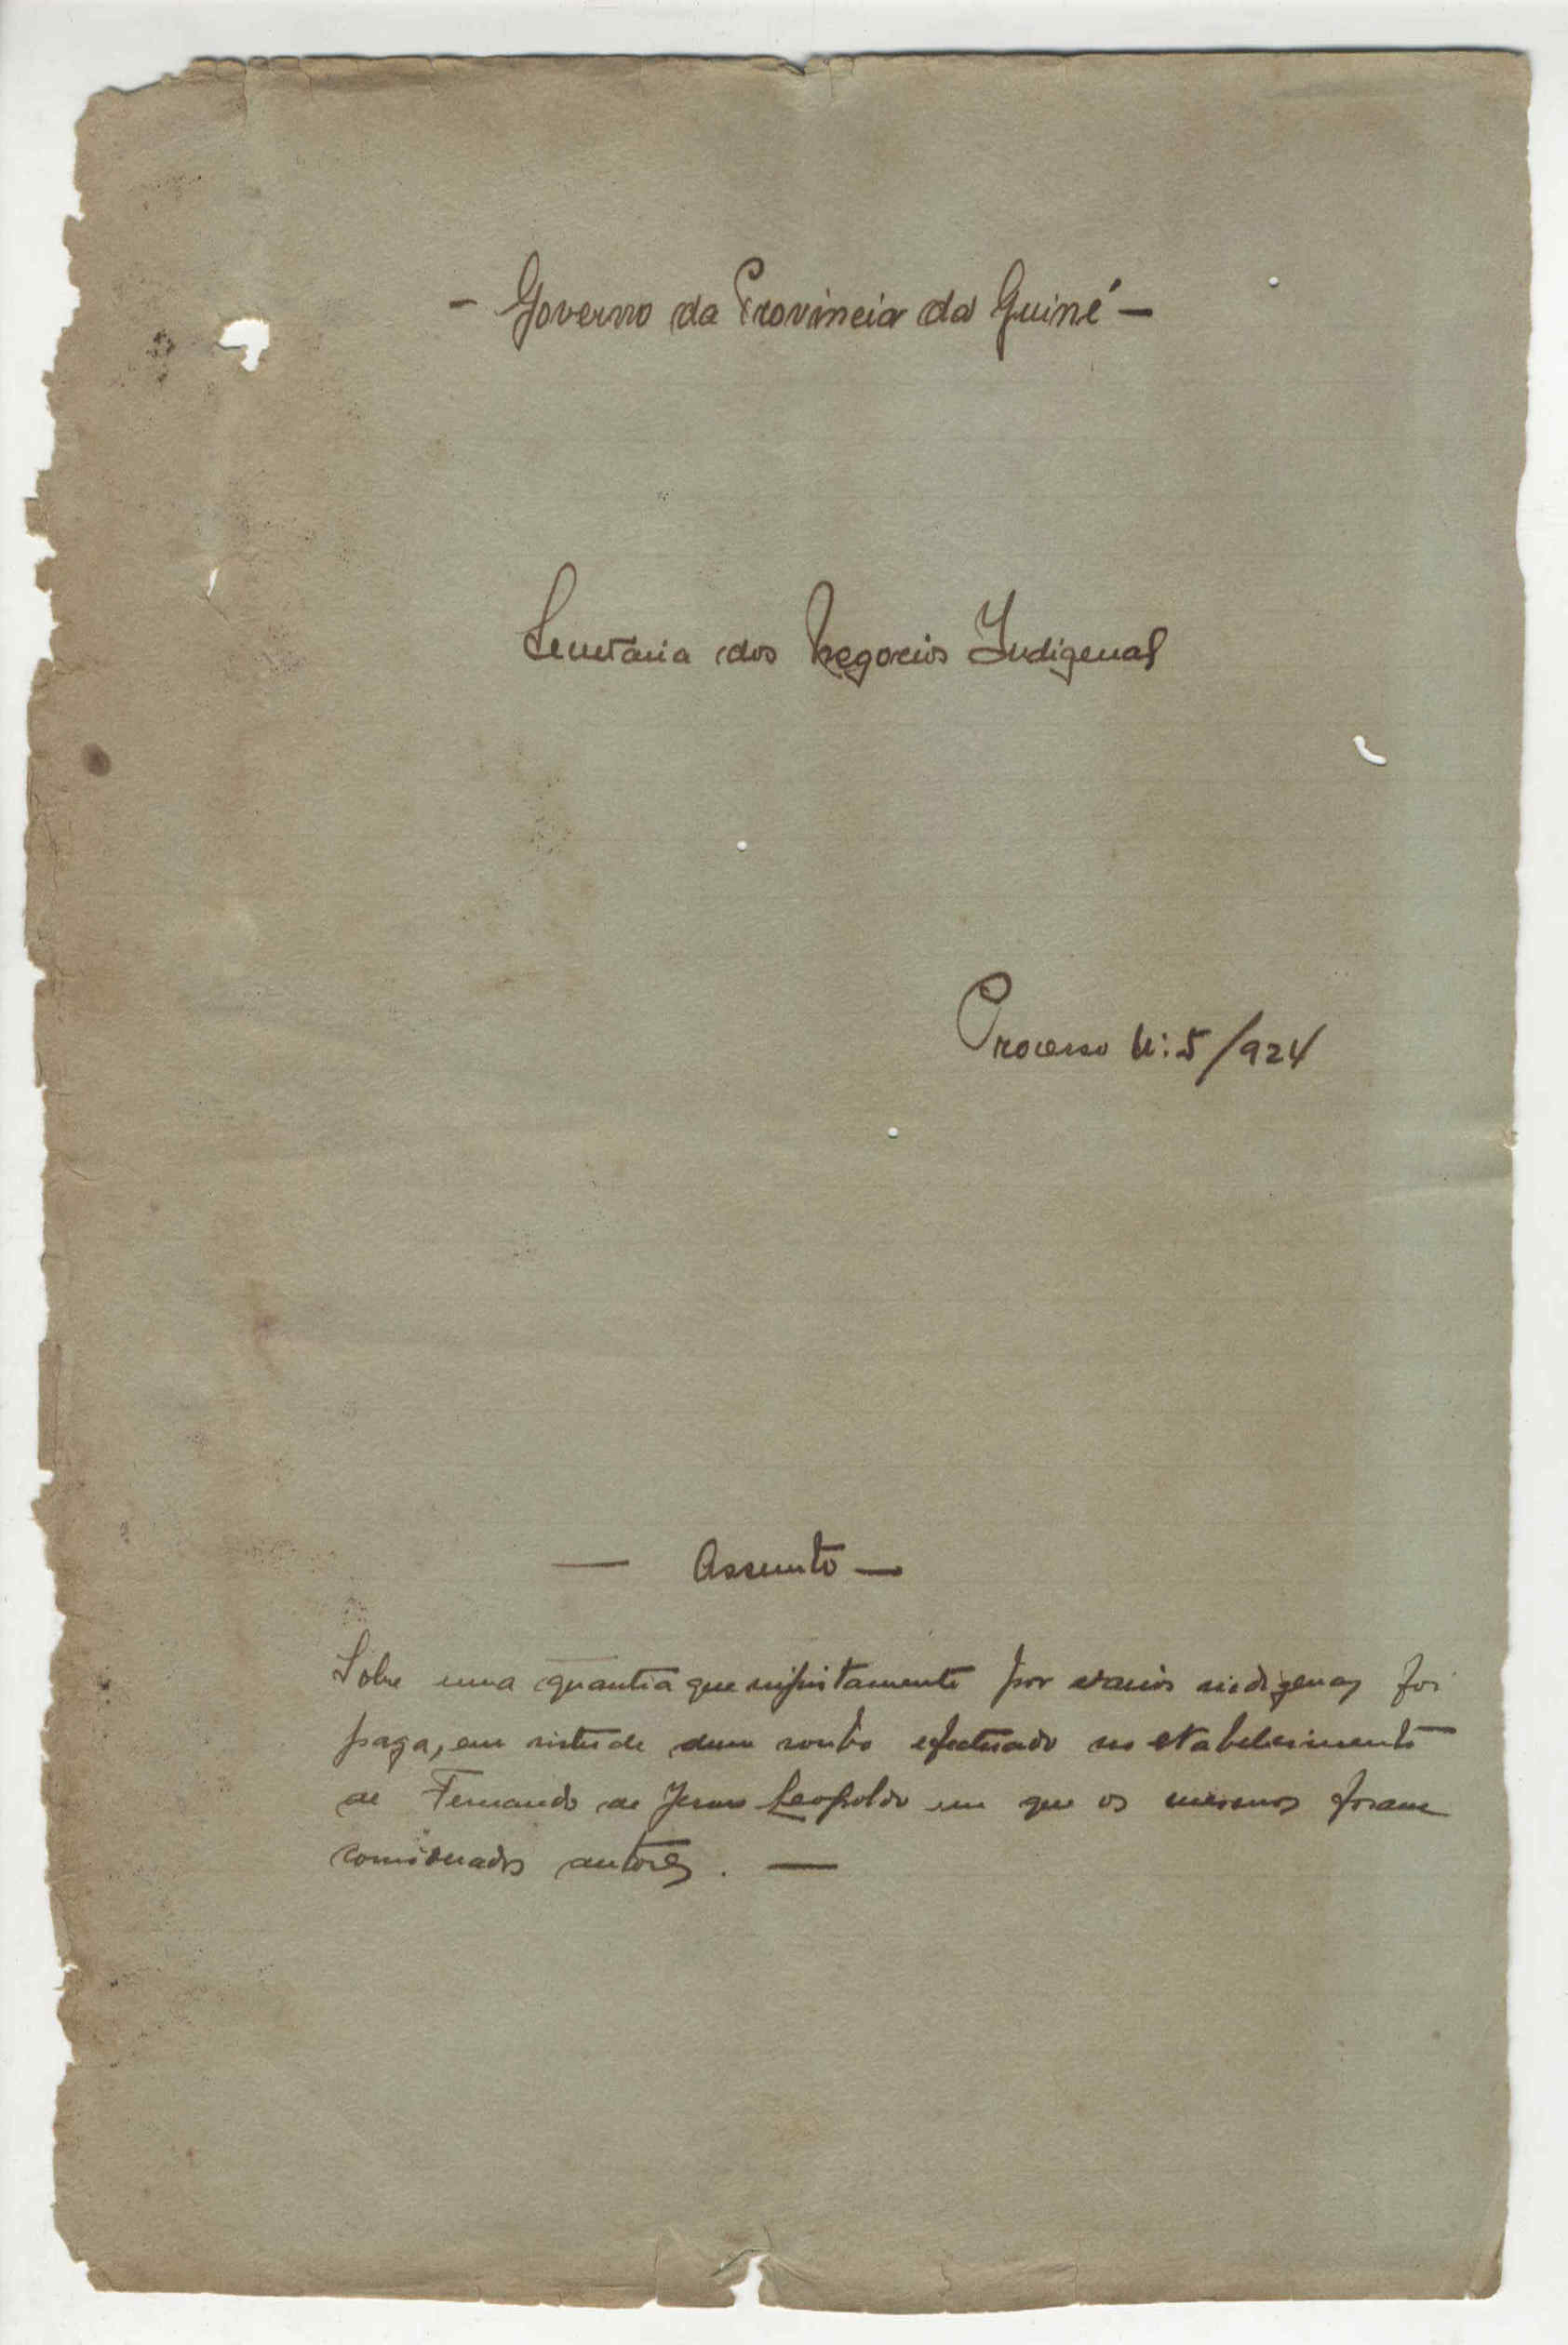 - Governo da Provincia da Guiné -
Secretaria dos Negocios Indigenas
Processo N: 5/924
— Assunto —
Sobre uma quantia que injustamente por varios indigenas foi
paga, em virtude dum roubo efectuado no estabelecimento
de Fernando de Jesus Leopoldo em que os mesmos foram
considerados autores. —